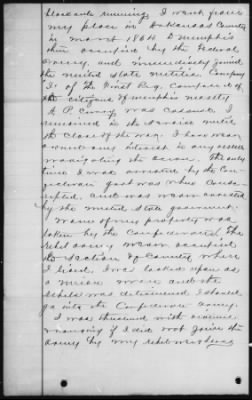 blockade running. I went from
my place in Arkansas County
in March 1864 to Memphis
then occupied by the Federal
Army, and immediately joined
the united state militia Company
"I" of the First Reg. Composed of
the citizens of memphis mostly
A P Curry was Colonel, I
remained in the service until
the close of the war. I have never
owned any interest in any vessel
navigating the ocean. The only
time I was arrested by the Con-
federate govt was when cons-
cripted, and was never arrested
by the united state goverment.
None of my property was
taken by the Confederates. The
rebel army never occupied
the section of Country where
I lived. I was looked upon as
a union man and the
rebels was determined I should
go into the Confederate Army.
I was threatened with
if I did not join the
army by my rebel